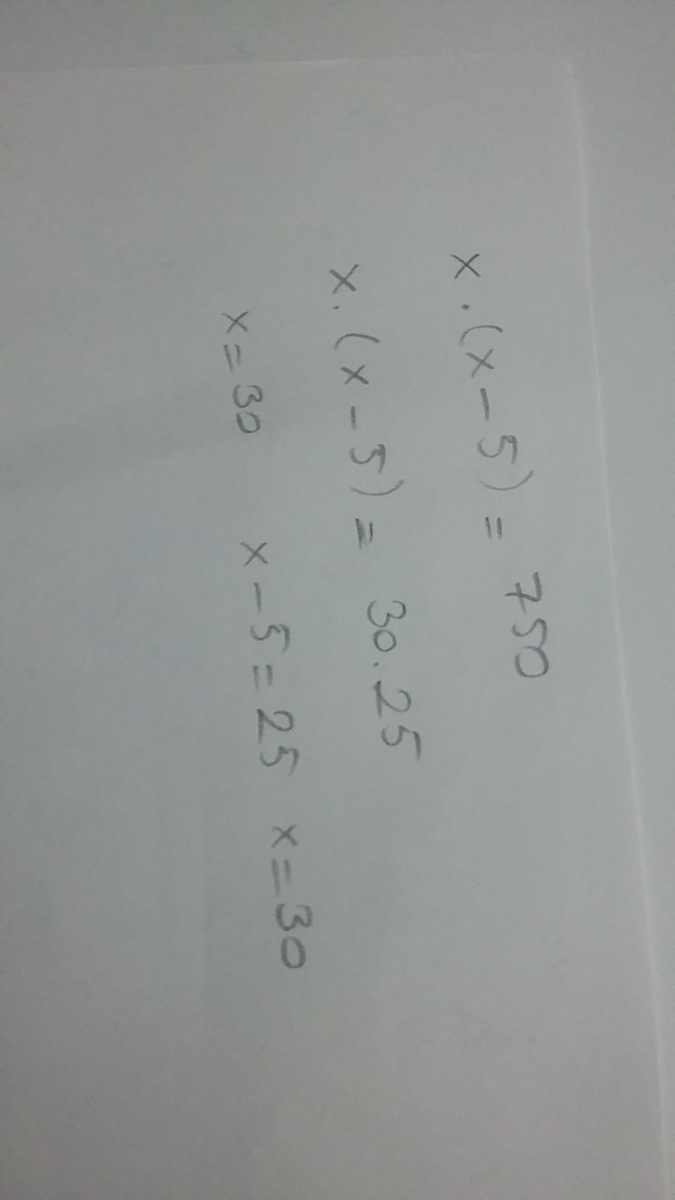 x.(x-5) = 750
x.(x-5) = 30.25
x=30 x-5=25 x=30